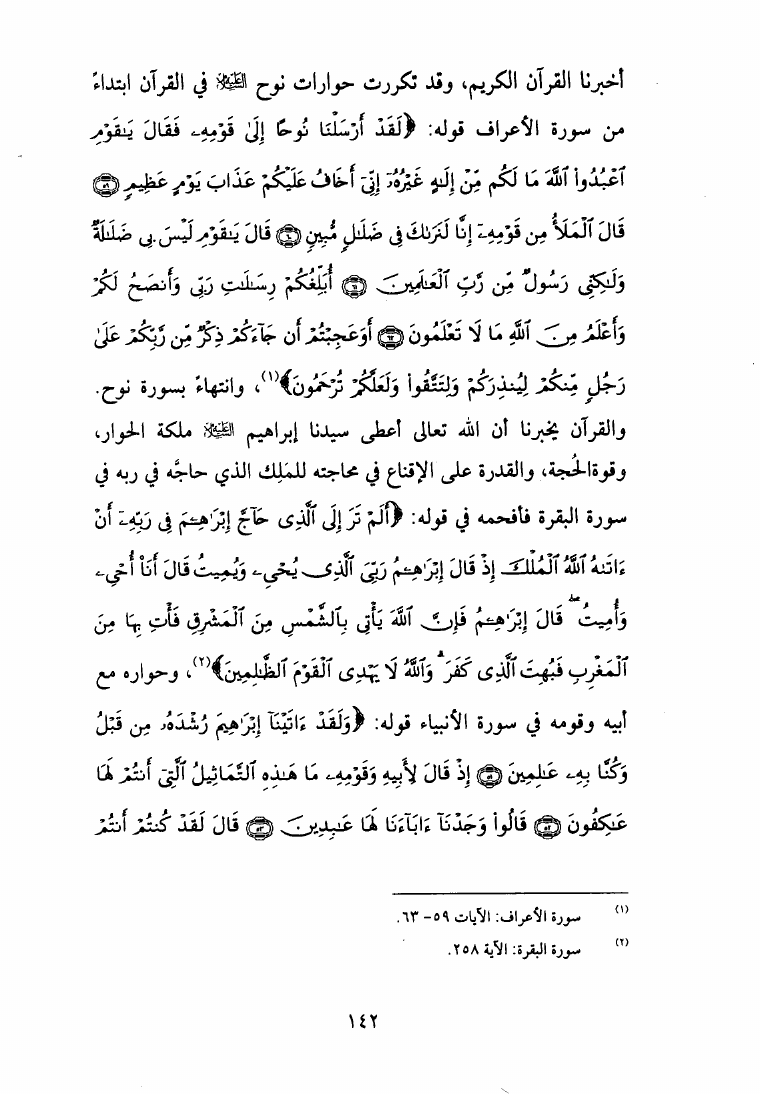 أخبرنا القرآن الكريم، وقد تكررت حوارات نوح عليه السلام في القرآن ابتداءً
من سورة الأعراف قوله: ﴿لَقَدْ أَرْسَلْنَا نُوحًا إِلَىٰ قَوْمِهِۦ فَقَالَ يَٰقَوْمِ
ٱعْبُدُوا۟ ٱللَّهَ مَا لَكُم مِّنْ إِلَٰهٍ غَيْرُهُۥٓ إِنِّىٓ أَخَافُ عَلَيْكُمْ عَذَابَ يَوْمٍ عَظِيمٍ ٥٩
قَالَ ٱلْمَلَأُ مِن قَوْمِهِۦٓ إِنَّا لَنَرَىٰكَ فِى ضَلَٰلٍ مُّبِينٍ ٦٠ قَالَ يَٰقَوْمِ لَيْسَ بِى ضَلَٰلَةٌ
وَلَٰكِنِّى رَسُولٌ مِّن رَّبِّ ٱلْعَٰلَمِينَ ٦١ أُبَلِّغُكُمْ رِسَٰلَٰتِ رَبِّى وَأَنصَحُ لَكُمْ
وَأَعْلَمُ مِنَ ٱللَّهِ مَا لَا تَعْلَمُونَ ٦٢ أَوَعَجِبْتُمْ أَن جَآءَكُمْ ذِكْرٌ مِّن رَّبِّكُمْ عَلَىٰ
رَجُلٍ مِّنكُمْ لِيُنذِرَكُمْ وَلِتَتَّقُوا۟ وَلَعَلَّكُمْ تُرْحَمُونَ﴾(١)، وانتهاءً بسورة نوح.
والقرآن يخبرنا أن الله تعالى أعطى سيدنا إبراهيم عليه السلام ملكة الحوار،
وقوةالحُجة، والقدرة على الإقناع في محاجته للمَلِك الذي حاجَّه في ربه في
سورة البقرة فأفحمه في قوله: ﴿أَلَمْ تَرَ إِلَى ٱلَّذِى حَآجَّ إِبْرَٰهِـۧمَ فِى رَبِّهِۦٓ أَنْ
ءَاتَىٰهُ ٱللَّهُ ٱلْمُلْكَ إِذْ قَالَ إِبْرَٰهِـۧمُ رَبِّىَ ٱلَّذِى يُحْىِۦ وَيُمِيتُ قَالَ أَنَا۠ أُحْىِۦ
وَأُمِيتُ ۖ قَالَ إِبْرَٰهِـۧمُ فَإِنَّ ٱللَّهَ يَأْتِى بِٱلشَّمْسِ مِنَ ٱلْمَشْرِقِ فَأْتِ بِهَا مِنَ
ٱلْمَغْرِبِ فَبُهِتَ ٱلَّذِى كَفَرَ ۗ وَٱللَّهُ لَا يَهْدِى ٱلْقَوْمَ ٱلظَّٰلِمِينَ﴾(٢)، وحواره مع
أبيه وقومه في سورة الأنبياء قوله: ﴿وَلَقَدْ ءَاتَيْنَآ إِبْرَٰهِيمَ رُشْدَهُۥ مِن قَبْلُ
وَكُنَّا بِهِۦ عَٰلِمِينَ ٥١ إِذْ قَالَ لِأَبِيهِ وَقَوْمِهِۦ مَا هَٰذِهِ ٱلتَّمَاثِيلُ ٱلَّتِىٓ أَنتُمْ لَهَا
عَٰكِفُونَ ٥٢ قَالُوا۟ وَجَدْنَآ ءَابَآءَنَا لَهَا عَٰبِدِينَ ٥٣ قَالَ لَقَدْ كُنتُمْ أَنتُمْ
(١) سورة الأعراف: الآيات ٥٩– ٦٣.
(٢) سورة البقرة: الآية ٢٥٨.
١٤٢